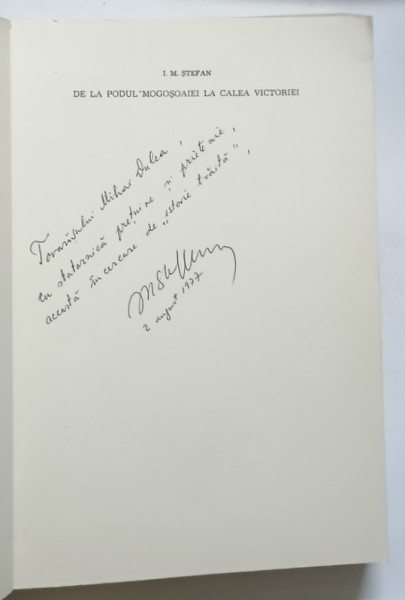 I. M. ȘTEFAN
DE LA PODUL MOGOȘOAIEI LA CALEA VICTORIEI
Tovarășului Mihai Dulea,
cu statornică prețuire și prietenie,
această încercare de „istorie trăită”,
2 august 1977